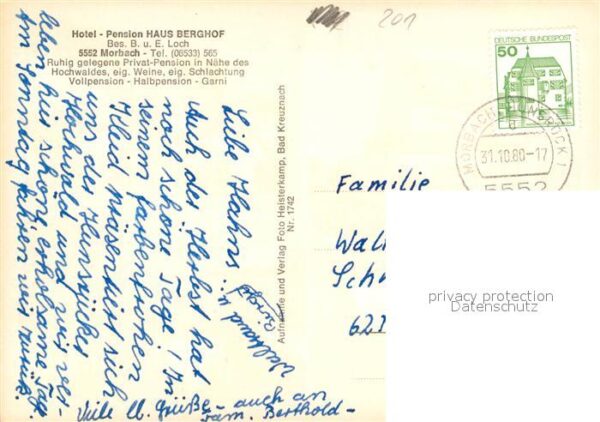 201
Hotel - Pension HAUS BERGHOF
Bes. B. u. E. Loch
5552 Morbach - Tel. (06533) 565
Ruhig gelegene Privat-Pension in Nähe des
Hochwaldes, eig. Weine, eig. Schlachtung
Vollpension - Halbpension - Garni
Liebe Hahns!
Auch der Herbst hat
noch schöne Tage! In
seinem farbenfrohen
Kleid präsentiert sich
uns der Hunsrücker
Hochwald und wir ver-
leben hier schöne erholsame Tage.
Am Sonntag fahren wir zurück.
Viele lb. Grüße - auch an
Fam. Berthold -
Waltraud u.
Aufnahme und Verlag Foto Heisterkamp, Bad Kreuznach
Nr. 1742
DEUTSCHE BUNDESPOST
50
MORBACH, HUNSRÜCK 1
31.10.80-17
5552
Familie
Walt
Sch
627
privacy protection
Datenschutz